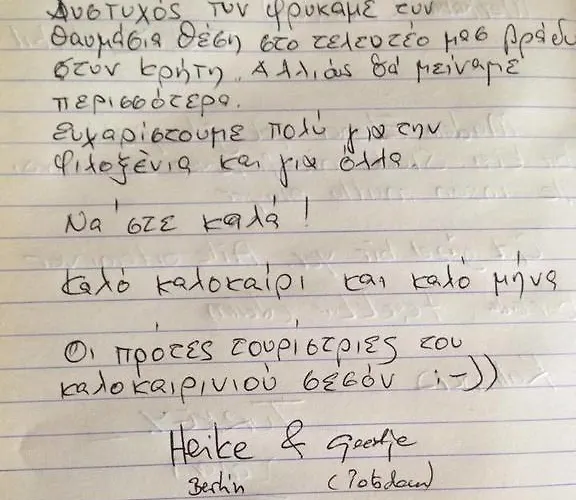 Δυστυχός τον φρυκαμε τον
θαυμάσια θέση στο τελευτέο μας βράδυ
στον κρήτη. Αλλιάς θά μείναμε
περισσότερα.
ευχαρίστουμε πολύ για την
φιλοξένια και για όλλα.
Να 'στε καλά!
καλό καλοκαίρι και καλό μήνα
Οι πρότες τουρίστριες του
καλοκαιρινιού σεσόν ;-))
Heike & Geertje
Berlin (Potsdam)